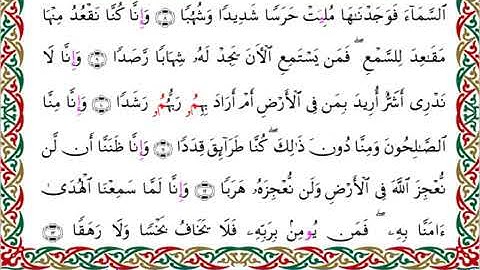 السَّمَآءَ فَوَجَدْنَٰهَا مُلِيَتْ حَرَسًا شَدِيدًا وَشُهُبًا ٨ وَإِنَّا كُنَّا نَقْعُدُ مِنْهَا
مَقَٰعِدَ لِلسَّمْعِ ۖ فَمَن يَسْتَمِعِ الْأَنَ يَجِدْ لَهُۥ شِهَابًا رَّصَدًا ٩ وَإِنَّا لَا
نَدْرِىٓ أَشَرٌّ أُرِيدَ بِمَن فِى الْأَرْضِ أَمْ أَرَادَ بِهِمُۥ رَبُّهُمُۥ رَشَدًا ١٠ وَإِنَّا مِنَّا
الصَّٰلِحُونَ وَمِنَّا دُونَ ذَٰلِكَ ۖ كُنَّا طَرَآئِقَ قِدَدًا ١١ وَإِنَّا ظَنَنَّآ أَن لَّن
نُّعْجِزَ اللَّهَ فِى الْأَرْضِ وَلَن نُّعْجِزَهُۥ هَرَبًا ١٢ وَإِنَّا لَمَّا سَمِعْنَا الْهُدَىٰٓ
ءَامَنَّا بِهِۦ ۖ فَمَن يُومِنۢ بِرَبِّهِۦ فَلَا يَخَافُ بَخْسًا وَلَا رَهَقًا ١٣